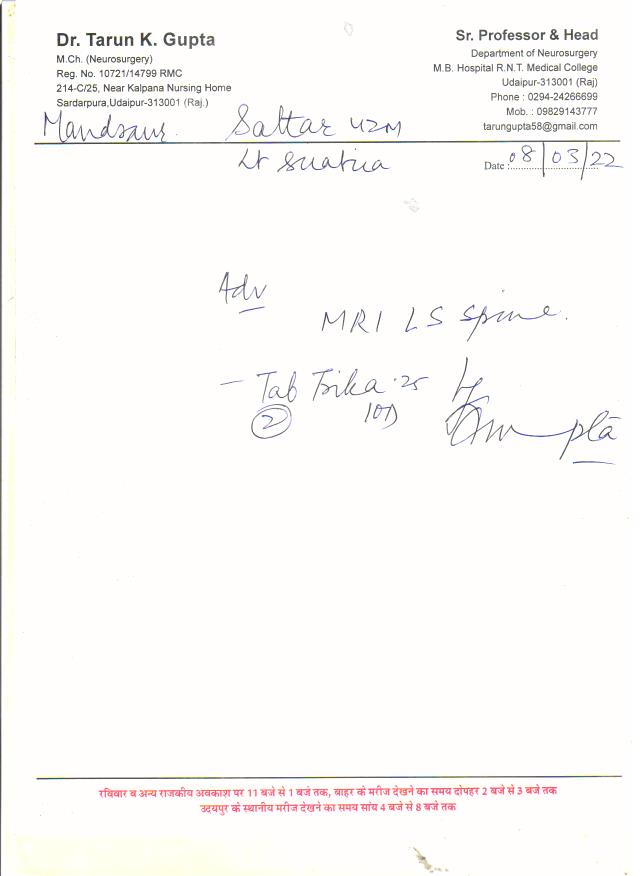 Dr. Tarun K. Gupta
M.Ch. (Neurosurgery)
Reg. No. 10721/14799 RMC
214-C/25, Near Kalpana Nursing Home
Sardarpura,Udaipur-313001 (Raj.)
Sr. Professor & Head
Department of Neurosurgery
M.B. Hospital R.N.T. Medical College
Udaipur-313001 (Raj)
Phone : 0294-24266699
Mob. : 09829143777
tarungupta58@gmail.com
Mandsaur Sattar 42M
Lt
Date : 08/03/22
Adv
MRI LS Spine.
- Tab Trika .25
2 10D
रविवार व अन्य राजकीय अवकाश पर 11 बजे से 1 बजे तक, बाहर के मरीज देखने का समय दोपहर 2 बजे से 3 बजे तक
उदयपुर के स्थानीय मरीज देखने का समय सांय 4 बजे से 8 बजे तक